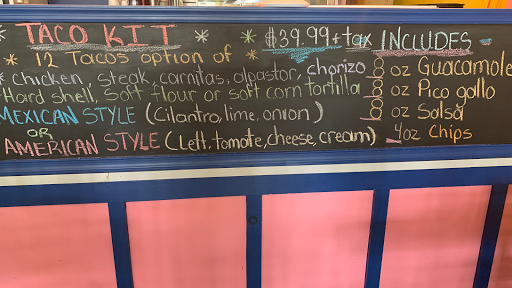 TACO KIT * * $39.99 + tax INCLUDES
* 12 Tacos option of * 8 oz Guacamole
* chicken, steak, carnitas, alpastor, chorizo 8 oz Pico gallo
Hard shell, Soft flour or soft corn tortilla 8 oz Salsa
MEXICAN STYLE (Cilantro, lime, onion) 4oz Chips
OR
AMERICAN STYLE (Lett, tomate, cheese, cream)